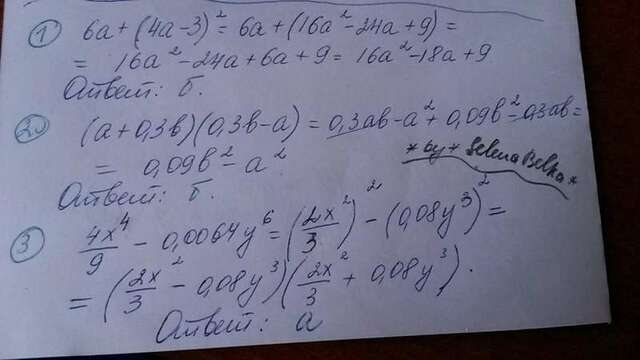 1) 6a + (4a - 3)² = 6a + (16a² - 24a + 9) =
= 16a² - 24a + 6a + 9 = 16a² - 18a + 9
Ответ: б.
2) (a + 0,3в)(0,3в - a) = 0,3aв - a² + 0,09в² - 0,3aв =
= 0,09в² - a².
*by * SelenaBelka*
Ответ: б.
3 4x⁴/9 - 0,0064y⁶ = (2x²/3)² - (0,08y³)² =
= (2x²/3 - 0,08y³)(2x²/3 + 0,08y³).
Ответ: а